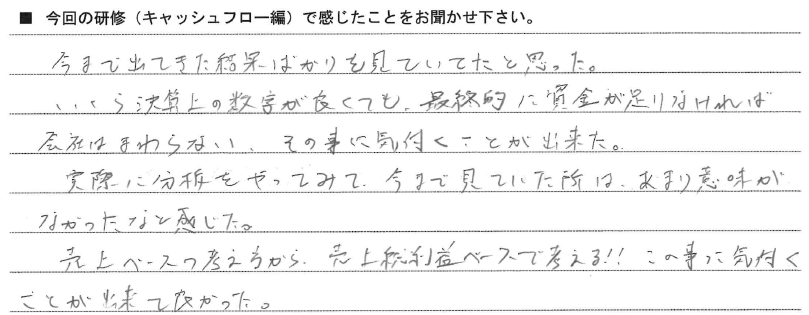 ■ 今回の研修（キャッシュフロー編）で感じたことをお聞かせ下さい。
今まで出てきた結果ばかりを見ていてたと思った。
いくら決算上の数字が良くても、最終的に資金が足りなければ
会社はまわらない、その事に気付くことが出来た。
実際に分析をやってみて、今まで見ていた所は、あまり意味が
なかったなと感じた。
売上ベースの考え方から、売上総利益ベースで考える!! この事に気付く
ことが出来て良かった。